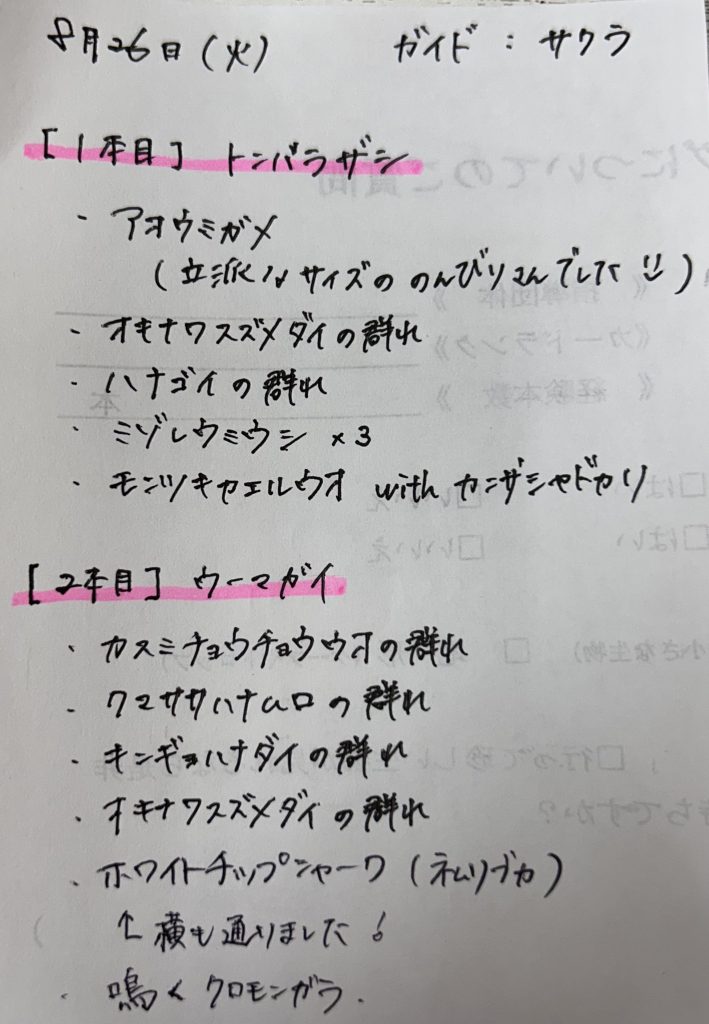 8月26日(火) ガイド：サクラ
[1本目] トンバラザシ
・アオウミガメ
(立派なサイズののんびりさんでした)
・オキナワスズメダイの群れ
・ハナゴイの群れ
・ミゾレウミウシ ×3
・モンツキカエルウオ with カンザシヤドカリ
[2本目] ウーマガイ
・カスミチョウチョウウオの群れ
・クマササハナムロの群れ
・キンギョハナダイの群れ
・オキナワスズメダイの群れ
・ホワイトチップシャーク(ネムリブカ)
↑横も通りました!
・鳴くクロモンガラ.